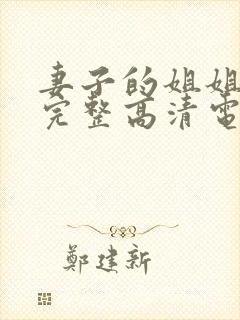 妻子的姐姐
完整高清電
鄭建新